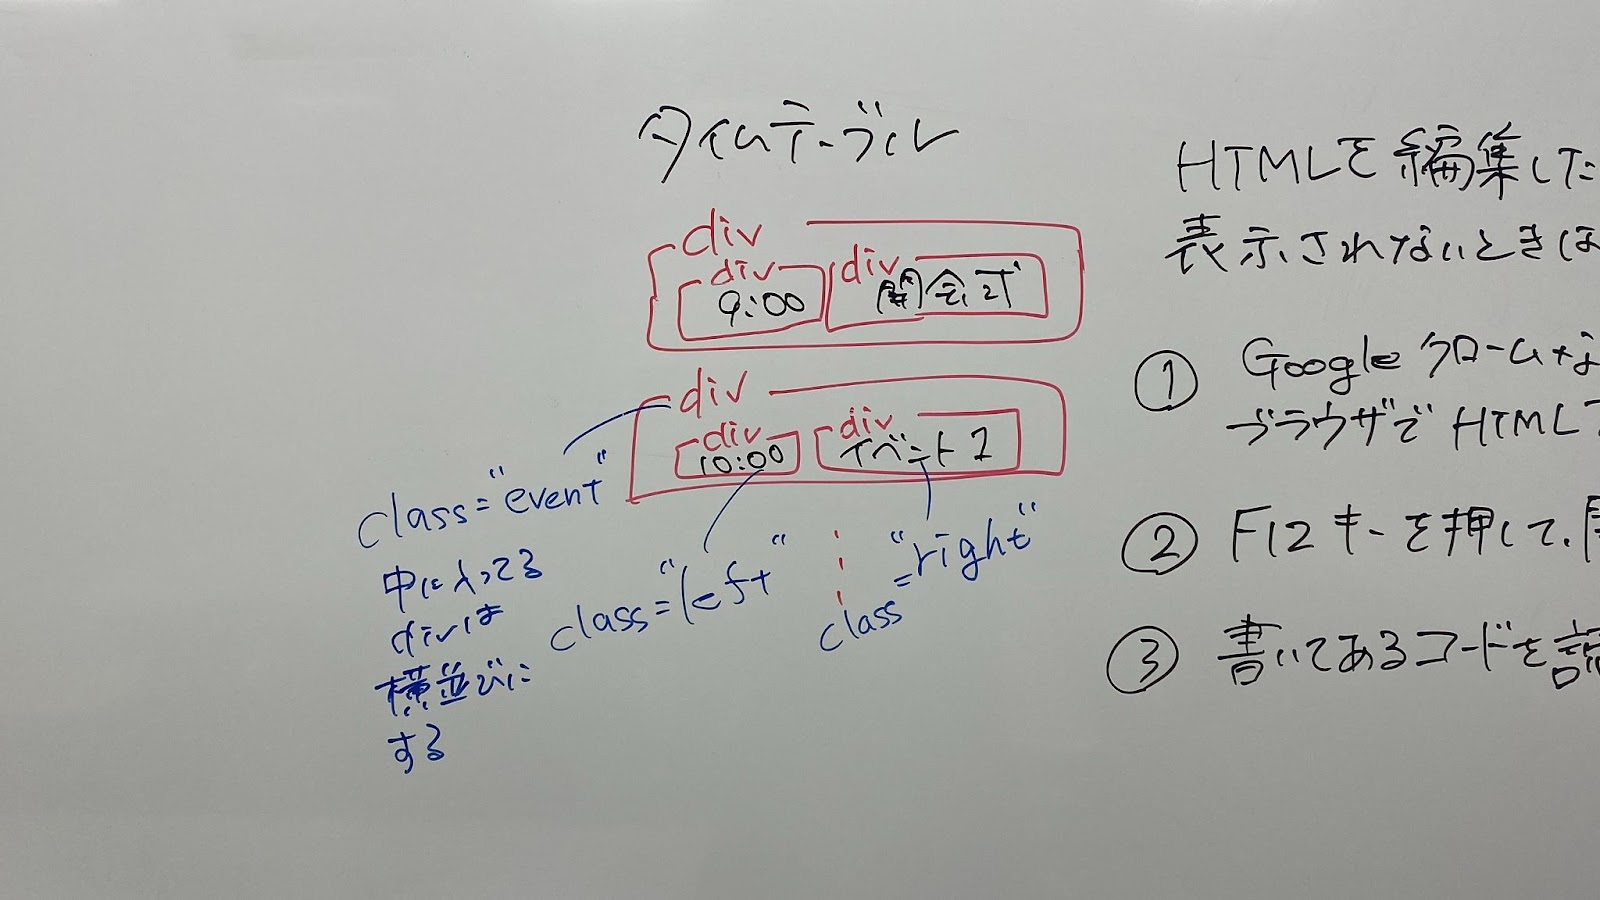 タイムテーブル
div
div
9:00
div
開会式
div
div
10:00
div
イベント1
class="event"
中に入ってる
divは
横並びに
する
class="left"
class="right"
HTMLを編集した
表示されないときは
① Googleクロームな
ブラウザでHTML
② F12キーを押して、
③ 書いてあるコードを